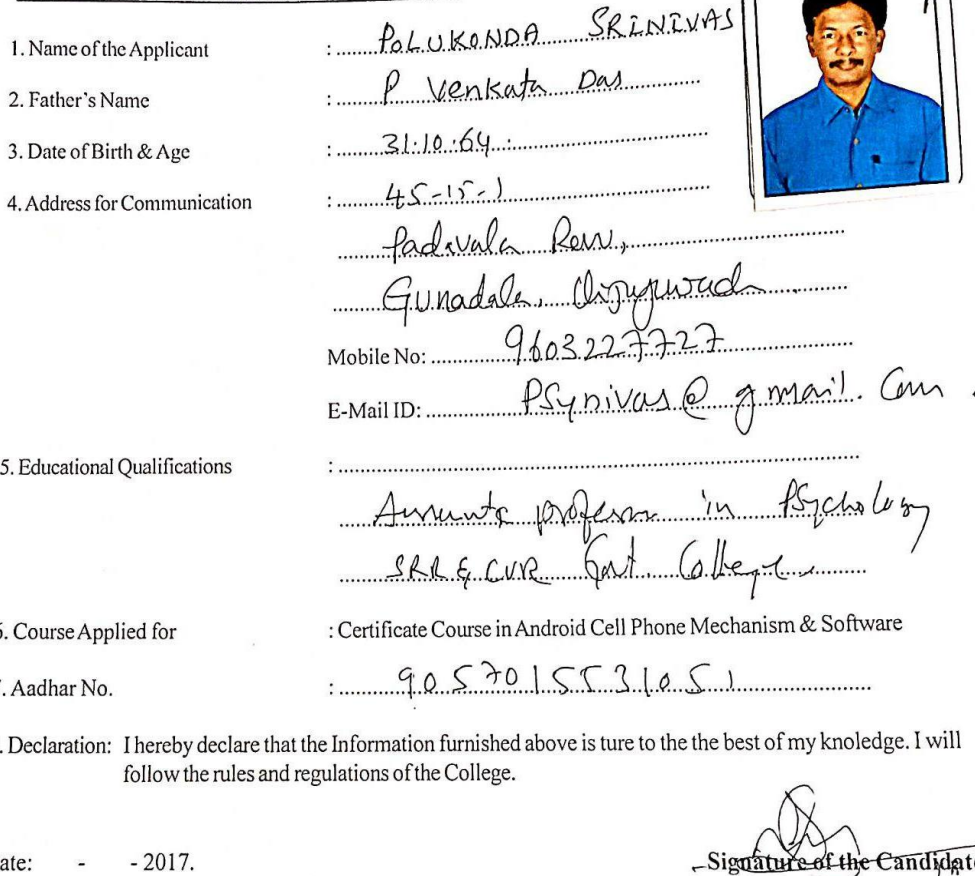 1. Name of the Applicant : POLUKONDA SRINIVAS
2. Father's Name : P Venkata Das
3. Date of Birth & Age : 31.10.64
4. Address for Communication : 45-15-1
Padavala Revu,
Gunadala,
Mobile No: 9603227727
E-Mail ID: PSynivas@gmail.com.
5. Educational Qualifications :
professor in Psychology
SRR & CVR Govt College
. Course Applied for : Certificate Course in Android Cell Phone Mechanism & Software
. Aadhar No. : 9057015531051
. Declaration: I hereby declare that the Information furnished above is ture to the the best of my knoledge. I will
follow the rules and regulations of the College.
ate: - - 2017. Signature of the Candidate